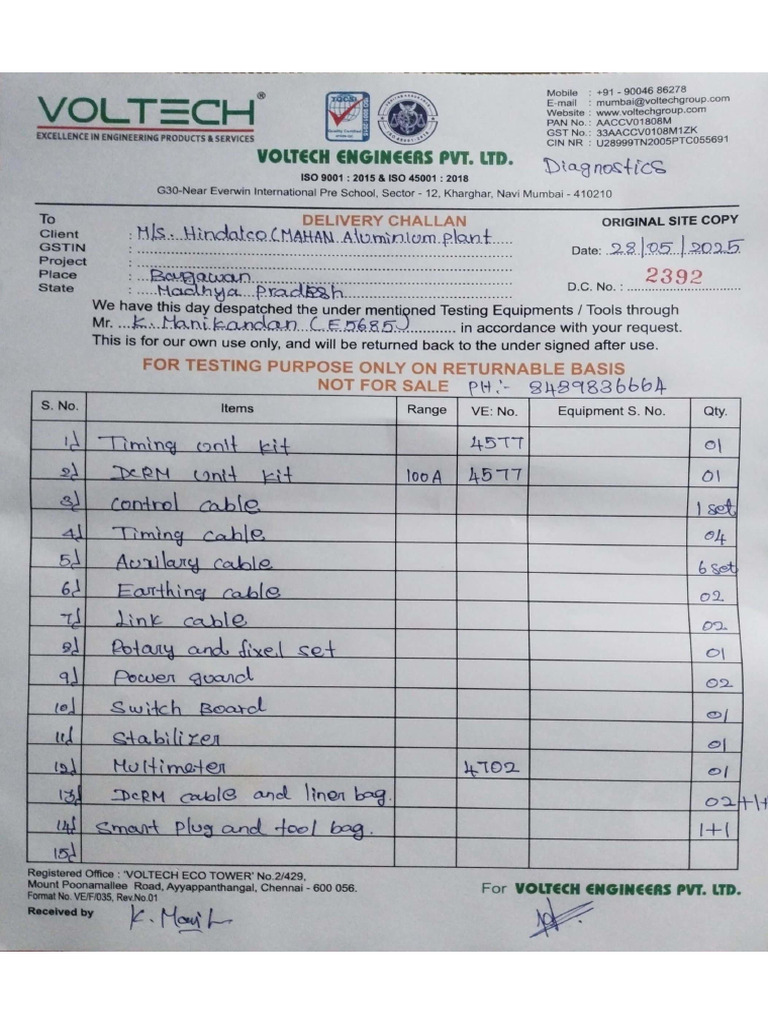 VOLTECH®
EXCELLENCE IN ENGINEERING PRODUCTS & SERVICES
Mobile : +91 - 90046 86278
E-mail : mumbai@voltechgroup.com
Website : www.voltechgroup.com
PAN No.: AACCV01808M
GST No.: 33AACCV0108M1ZK
CIN NR : U28999TN2005PTC055691
VOLTECH ENGINEERS PVT. LTD.
Diagnostics
ISO 9001 : 2015 & ISO 45001 : 2018
G30-Near Everwin International Pre School, Sector - 12, Kharghar, Navi Mumbai - 410210
To DELIVERY CHALLAN ORIGINAL SITE COPY
Client : M/s. Hindalco (MAHAN Aluminium plant
GSTIN : Date: 28/05/2025
Project :
Place : Bargawan D.C. No. : 2392
State : Madhya Pradesh
We have this day despatched the under mentioned Testing Equipments / Tools through
Mr. K. Manikandan (E5685) in accordance with your request.
This is for our own use only, and will be returned back to the under signed after use.
FOR TESTING PURPOSE ONLY ON RETURNABLE BASIS
NOT FOR SALE PH:- 8489836664
S. No. Items Range VE: No. Equipment S. No. Qty.
1) Timing unit kit 4577 01
2) DCRM unit kit 100A 4577 01
3) control cable 1 set
4) Timing cable 04
5) Auxilary cable 6 set
6) Earthing cable 02
7) Link cable 02
8) Rotary and fixel set 01
9) Power guard 02
10) Switch Board 01
11) Stabilizer 01
12) Multimeter 4702 01
13) DCRM cable and liner bag. 02+1+
14) Smart plug and tool bag. 1+1
15)
Registered Office : 'VOLTECH ECO TOWER' No.2/429,
Mount Poonamallee Road, Ayyappanthangal, Chennai - 600 056.
Format No. VE/F/035, Rev.No.01
For VOLTECH ENGINEERS PVT. LTD.
Received by